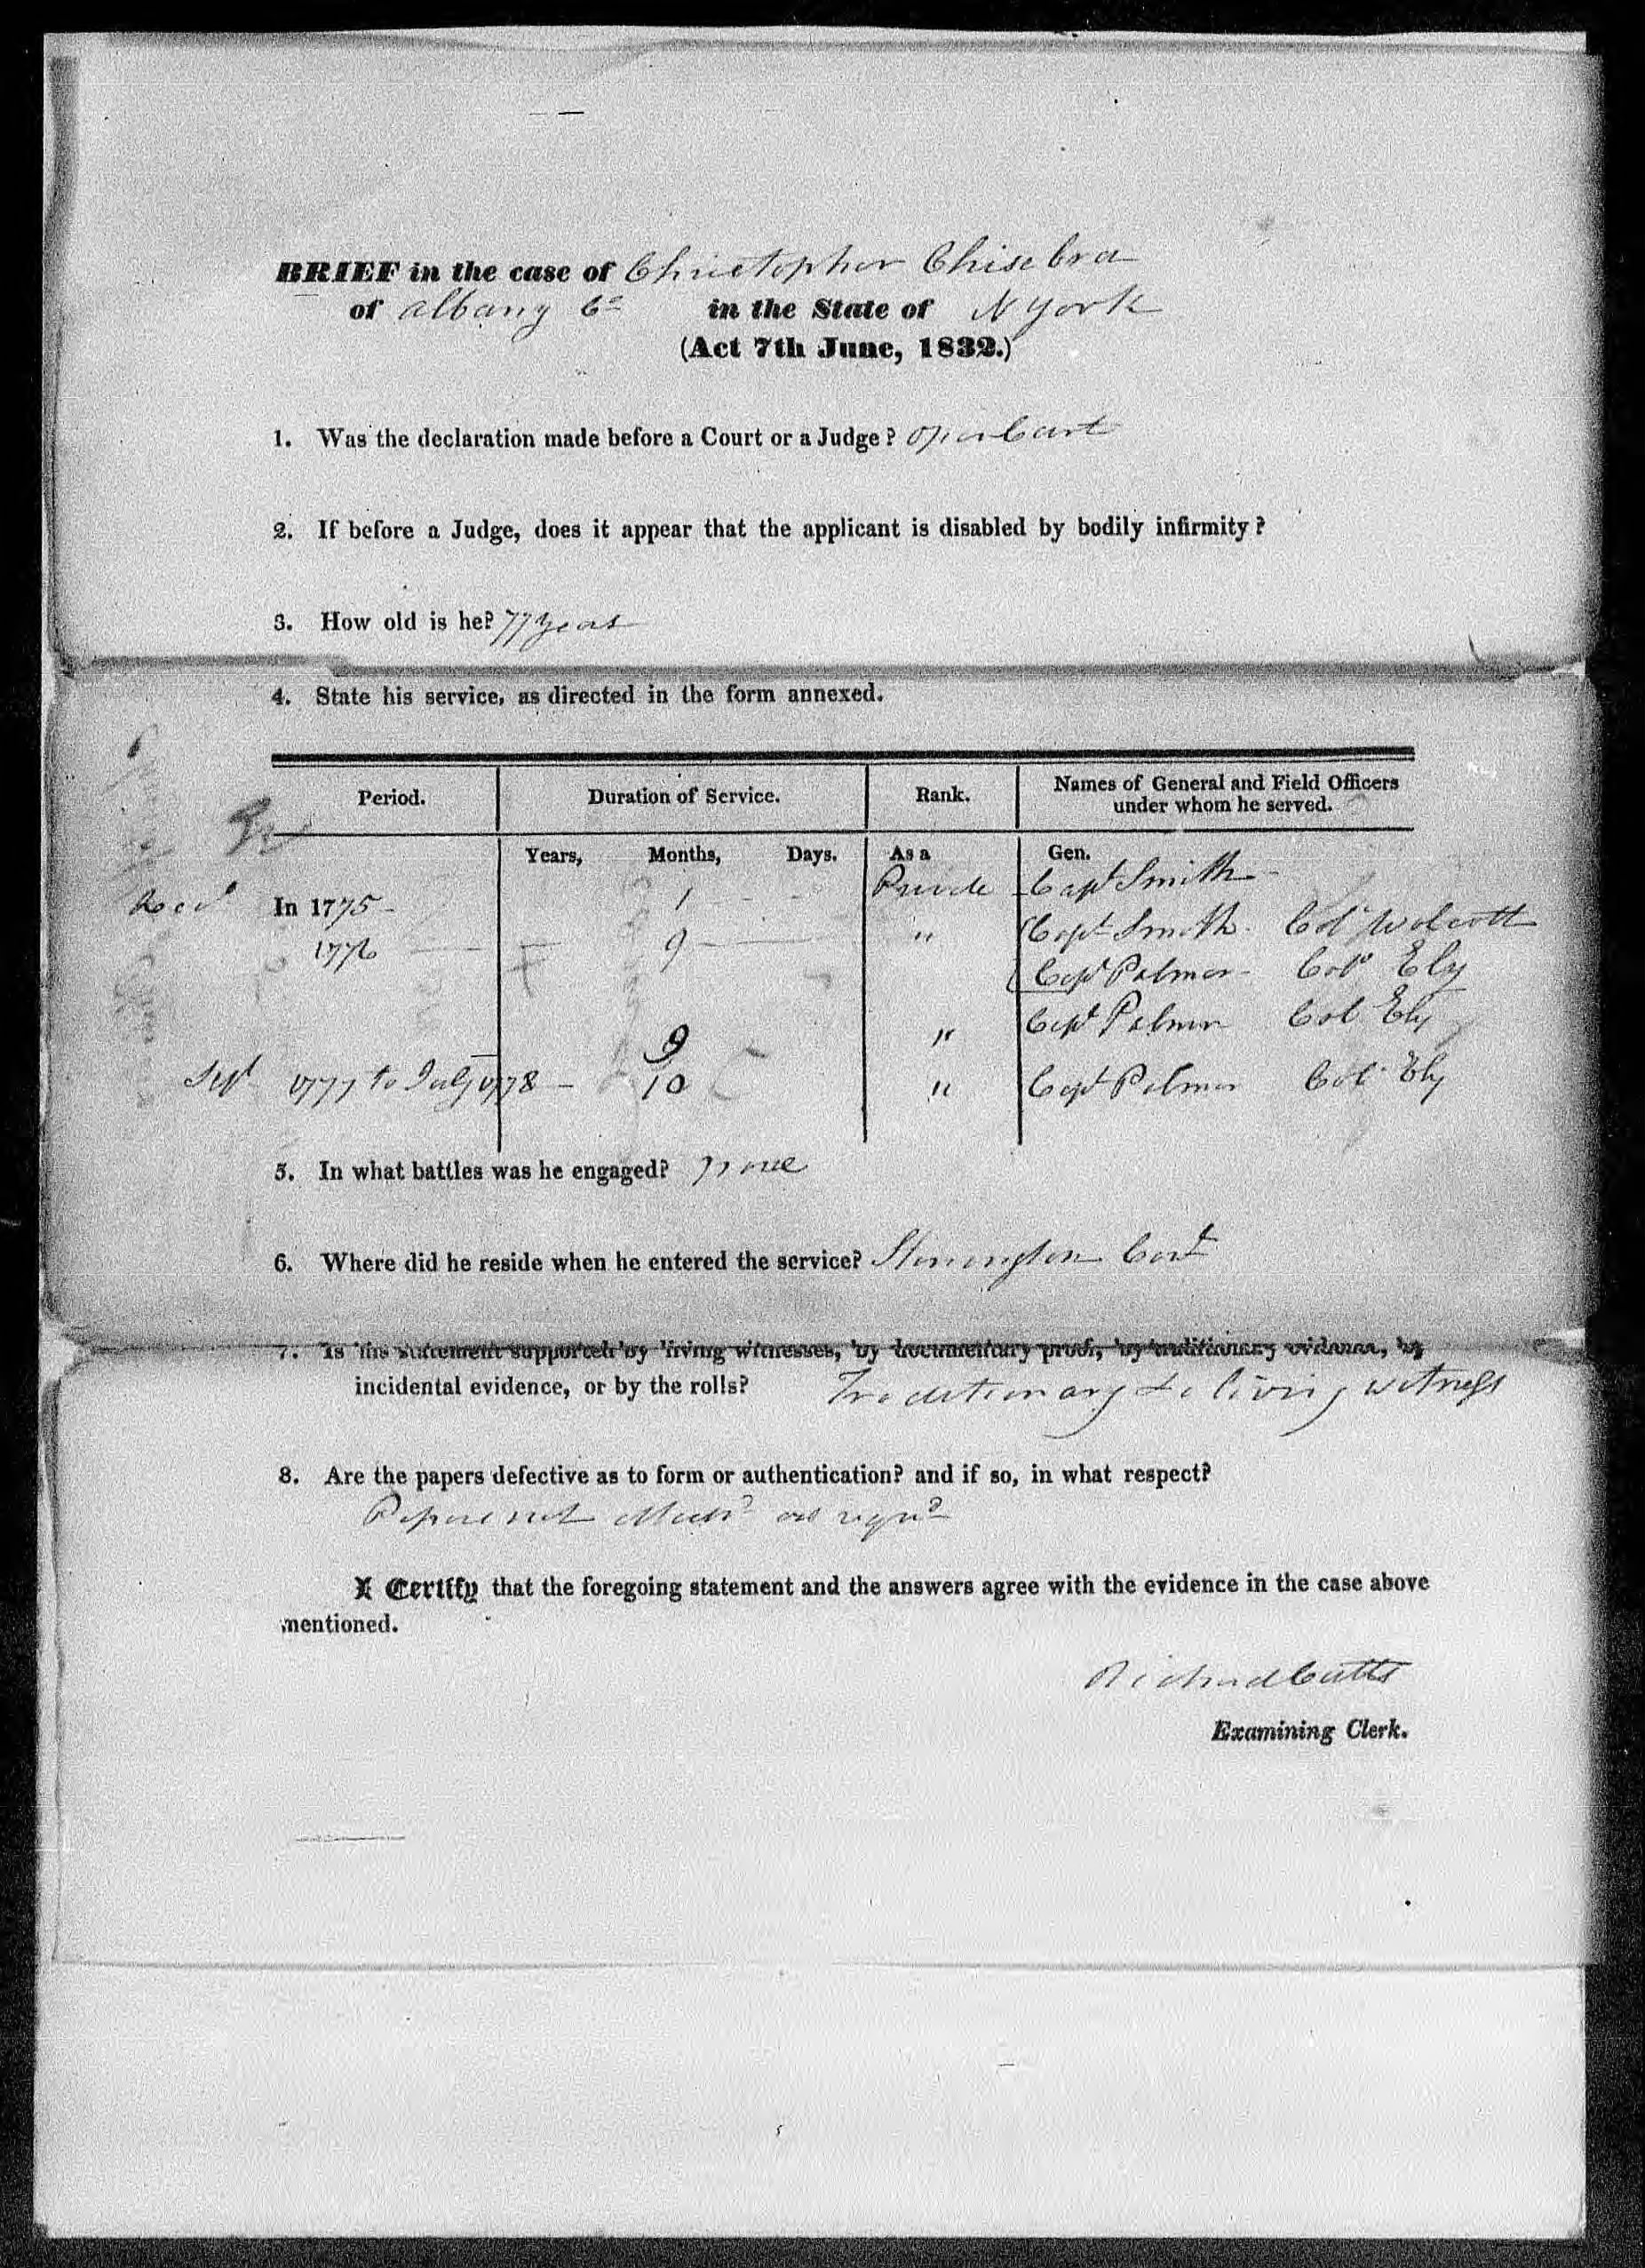 BRIEF in the case of Christopher Chisebra
of Albany Co in the State of N York
(Act 7th June, 1832.)
1. Was the declaration made before a Court or a Judge? open Court
2. If before a Judge, does it appear that the applicant is disabled by bodily infirmity?
3. How old is he? 77 years
4. State his service, as directed in the form annexed.
Period. Duration of Service. Rank. Names of General and Field Officers
under whom he served.
Years, Months, Days. As a Gen.
In 1775 - 1 Private Capt Smith
1776 9 " Capt Smith Col Wolcott
Capt Palmer Col Ely
9 " Capt Palmer Col Ely
Sept 1777 to July 1778 - 10 " Capt Palmer Col Ely
5. In what battles was he engaged? none
6. Where did he reside when he entered the service? Stonington Cont
7. Is his statement supported by living witnesses, by documentary proof, by traditionary evidence, by
incidental evidence, or by the rolls? Traditionary & living witness
8. Are the papers defective as to form or authentication? and if so, in what respect?
Papers not as reqrd
I Certify that the foregoing statement and the answers agree with the evidence in the case above
mentioned.
Richard Cutts
Examining Clerk.